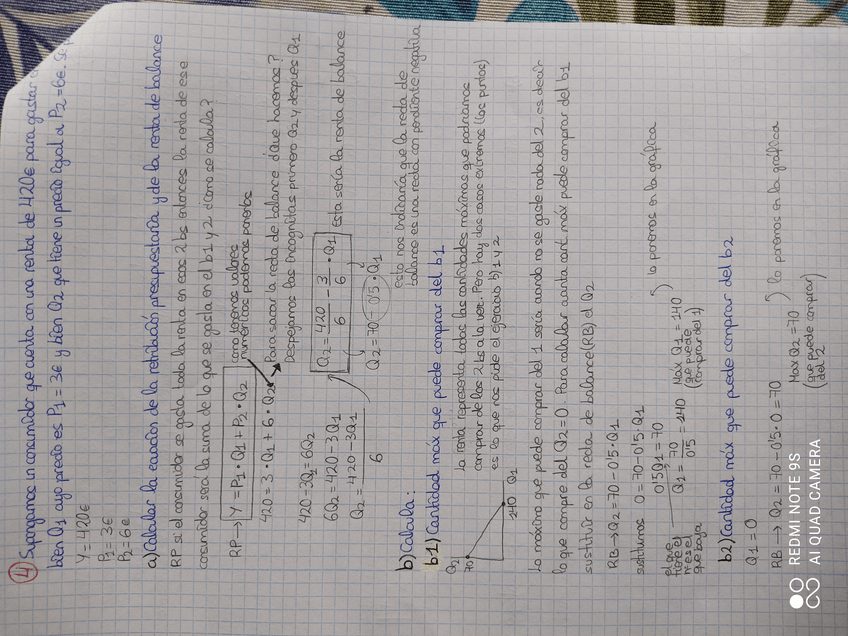 4 Supongamos un consumidor que cuenta con una renta de 420€ para gastar
bien Q1 cuyo precio es P1 = 3€ y bien Q2 que tiene un precio igual a P2 = 6€. Se
Y = 420€
P1 = 3€
P2 = 6€
a) Calcular la ecuación de la retribución presupuestaria y de la renta de balance
RP si el consumidor se gasta toda la renta en esos 2 bs entonces la renta de ese
consumidor será la suma de lo que se gasta en el b1 y 2 ¿cómo se calcula?
RP → Y = P1·Q1 + P2·Q2
como tenemos valores
numéricos podemos ponerlos
420 = 3·Q1 + 6·Q2
Para sacar la recta de balance ¿Que hacemos?
Despejamos las incógnitas primero Q2 y después Q1
420 - 3Q1 = 6Q2
6Q2 = 420 - 3Q1
Q2 = 420 - 3Q1 / 6
Q2 = 420/6 - 3/6 · Q1
Esta sería la renta de balance
Q2 = 70 - 0'5·Q1
esto nos indicaría que la recta de
balance es una recta con pendiente negativa
b) Calcula:
b1) Cantidad máx que puede comprar del b1
la renta representa todas las cantidades máximas que podríamos
comprar de los 2 bs a la vez. Pero hay dos casos extremos (los puntos)
es lo que nos pide el ejercicio b) 1 y 2
Q2
70
140
Q1
Lo máximo que puede comprar del 1 sería cuando no se gaste nada del 2, es decir
lo que compre del Q2 = 0. Para calcular cuánta cant. máx puede comprar del b1
sustituir en la recta de balance (RB) el Q2
RB → Q2 = 70 - 0'5·Q1
sustituimos 0 = 70 - 0'5·Q1
0'5Q1 = 70
Q1 = 70 / 0'5 = 140
Máx Q1 = 140
(que puede
comprar del 1)
lo ponemos en la gráfica
el que
tiene el
que baja
b2) Cantidad máx que puede comprar del b2
Q1 = 0
RB → Q2 = 70 - 0'5·0 = 70
Máx Q2 = 70
(que puede comprar)
del 2
lo ponemos en la gráfica
REDMI NOTE 9S
AI QUAD CAMERA